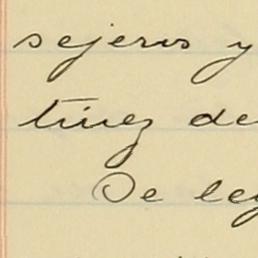 sejeros y
tínez de
De ley